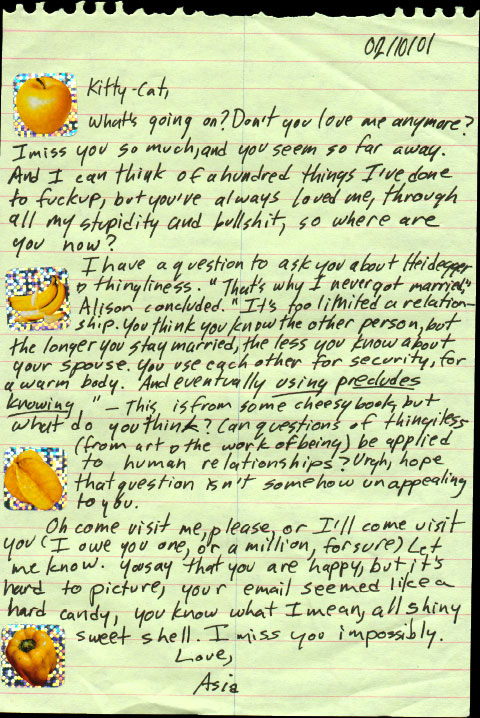 02/10/01
Kitty-Cat,
What's going on? Don't you love me anymore?
I miss you so much, and you seem so far away.
And I can think of a hundred things I've done
to fuckup, but you've always loved me, through
all my stupidity and bullshit, so where are
you now?
I have a question to ask you about Heidegger
& thingliness. "That's why I never got married,"
Alison concluded. "It's too limited a relation-
ship. you think you know the other person, but
the longer you stay married, the less you know about
your spouse. you use each other for security, for
a warm body. And eventually using precludes
knowing" - This is from some cheesy book, but
what do you think? Can questions of thingiless
(from art & the work of being) be applied
to human relationships? Urgh, hope
that question isn't somehow unappealing
to you.
Oh come visit me, please, or I'll come visit
you (I owe you one, or a million, for sure) Let
me know. you say that you are happy, but it's
hard to picture, your email seemed like a
hard candy, you know what I mean, all shiny
sweet shell. I miss you impossibly.
Love,
Asia